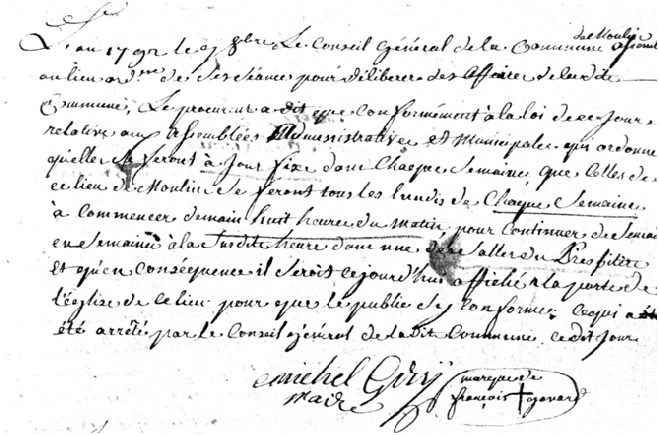 L'an 1792 le 9 8bre Le Conseil général de la Commune de Moulin assemblé
au lieu ord.re de ses séances pour déliberer des affaires de la dite
Commune, Le procureur a dit que conformément à la loi de ce jour
relative aux assemblées Administratives et Municipales qui ordonne
quelles se feront à jour fixe dans Chaque Semaine, que Celles de
ce lieu de Moulin se feront tous les lundis de Chaque Semaine
à Commencer demain huit heures du Matin, pour Continuer de Semaine
en Semaine à la Susdite heure dans une des Salles du Presbitère
et qu'en Conséquence il seroit cejourd'hui affiché à la porte de
l'église de ce lieu pour que le public s'y conforme; ce qui a
été arrêté par le Conseil général de ladite Commune cedit jour
michel
maire
marque de
françois +